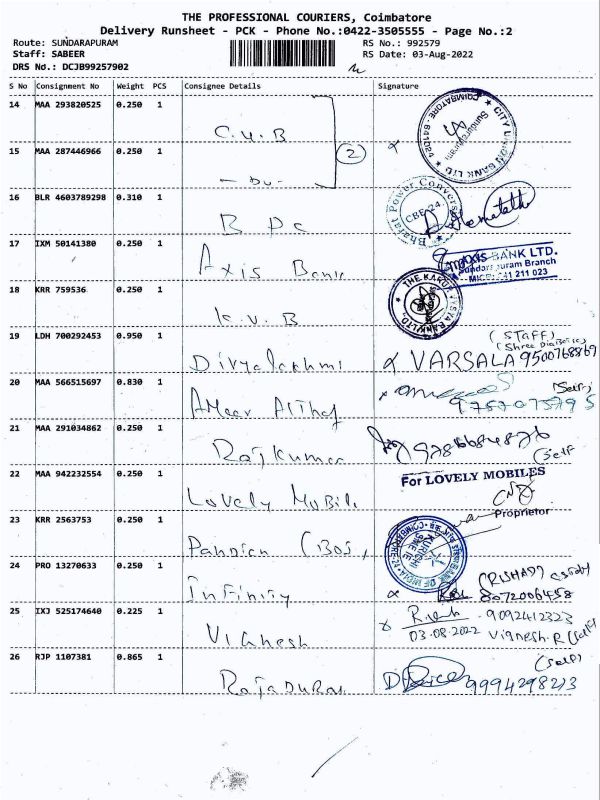 THE PROFESSIONAL COURIERS, Coimbatore
Delivery Runsheet - PCK - Phone No.:0422-3505555 - Page No.:2
Route: SUNDARAPURAM RS No.: 992579
Staff: SABEER RS Date: 03-Aug-2022
DRS No.: DCJB99257902
S No Consignment No Weight PCS Consignee Details Signature
14 MAA 293820525 0.250 1 C.U.B
15 MAA 287446966 0.250 1 - Do - 2
CITY UNION BANK LTD COIMBATORE Sundarapuram
16 BLR 4603789298 0.310 1 B P C
Bharat Power CBE-24
17 IXM 50141380 0.250 1 Axis Bank
AXIS BANK LTD.
Sundarapuram Branch
18 KRR 759536 0.250 1 K.V.B
THE KARUR VYSYA BANK LTD.
19 LDH 700292453 0.950 1 Divyalakhmi VARSALA 9500768869
(STAFF)
20 MAA 566515697 0.830 1 AMeer Althaf
(Self)
21 MAA 291034862 0.250 1 Rajkumar
(Self
22 MAA 942232554 0.250 1 Lovely Mobil
For LOVELY MOBILES
Proprietor
23 KRR 2563753 0.250 1 Pandian (BOI)
BANK OF INDIA
24 PRO 13270633 0.250 1 Infinity
8072006458
25 IXJ 525174640 0.225 1 Vighesh
9092412323
03.08.2022 Vignesh.R (Self)
26 RJP 1107381 0.865 1 Rajadurai
(Self)
9994298213